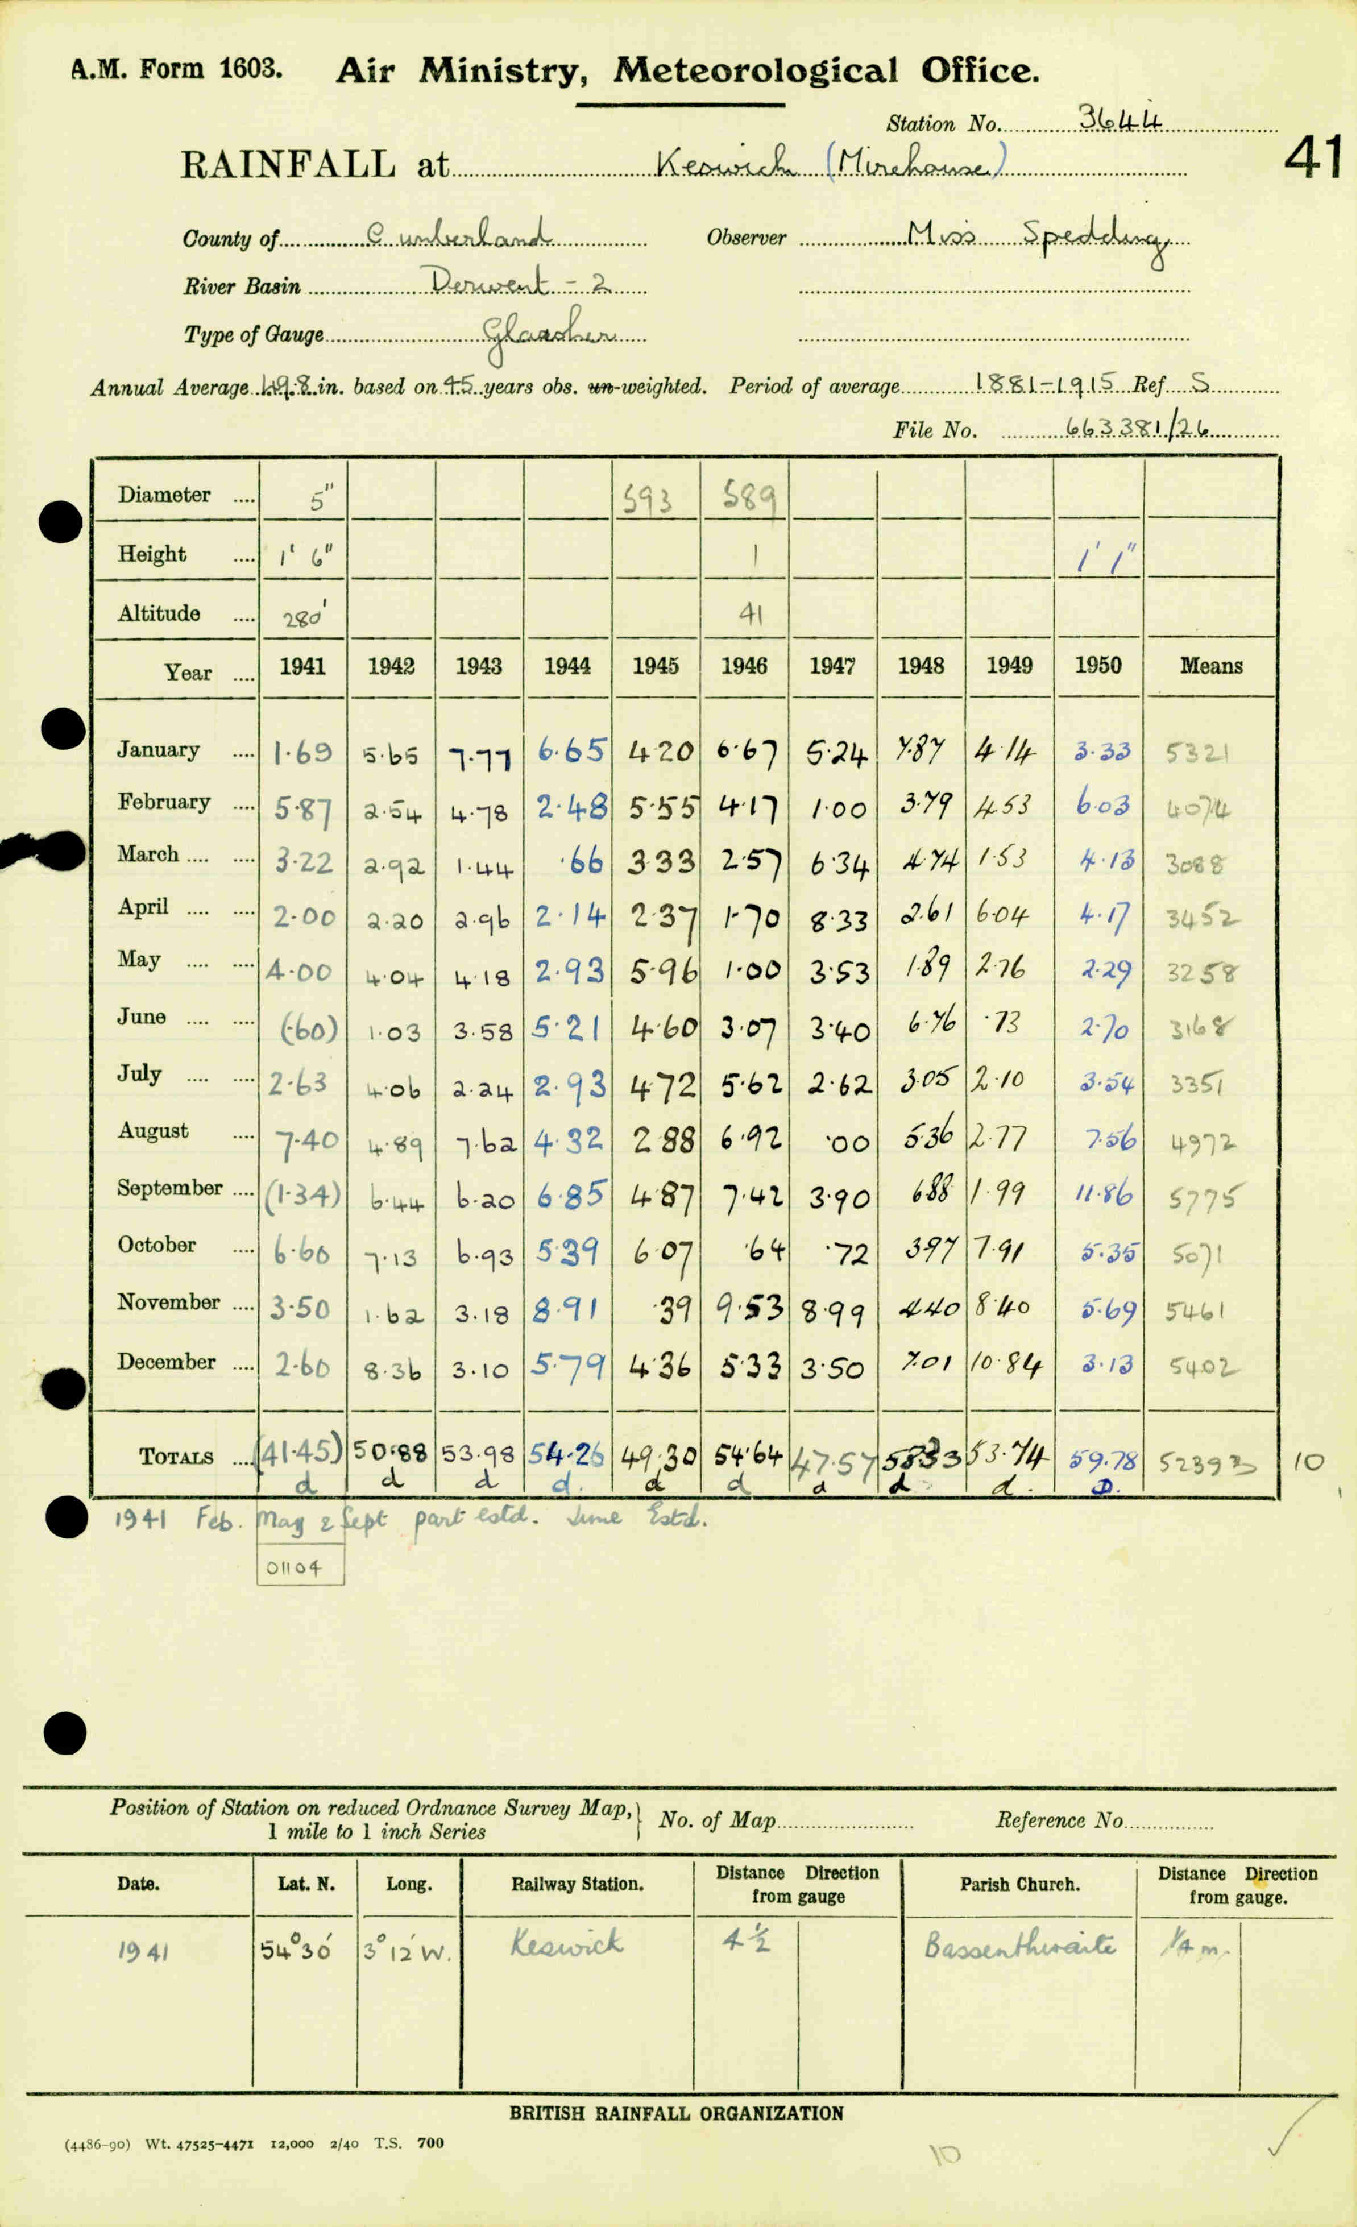 A.M. Form 1603. Air Ministry, Meteorological Office.
Station No. 3644
41
RAINFALL at Keswick (Mirehouse)
County of Cumberland Observer Miss Spedding
River Basin Derwent - 2
Type of Gauge Glaisher
Annual Average 49.8 in. based on 45 years obs. un-weighted. Period of average 1881-1915 Ref S
File No. 663381/26
Diameter .... 5" 593 589
Height .... 1' 6" 1 1' 1"
Altitude .... 280' 41
Year .... 1941 1942 1943 1944 1945 1946 1947 1948 1949 1950 Means
January .... 1.69 5.65 7.77 6.65 4.20 6.67 5.24 7.87 4.14 3.33 5321
February .... 5.87 2.54 4.78 2.48 5.55 4.17 1.00 3.79 4.53 6.03 4074
March .... .... 3.22 2.92 1.44 .66 3.33 2.57 6.34 4.74 1.53 4.13 3088
April .... .... 2.00 2.20 2.96 2.14 2.37 1.70 8.33 2.61 6.04 4.17 3452
May .... .... 4.00 4.04 4.18 2.93 5.96 1.00 3.53 1.89 2.76 2.29 3258
June .... .... (.60) 1.03 3.58 5.21 4.60 3.07 3.40 6.76 .73 2.70 3168
July .... .... 2.63 4.06 2.24 2.93 4.72 5.62 2.62 3.05 2.10 3.54 3351
August .... 7.40 4.89 7.62 4.32 2.88 6.92 .00 5.36 2.77 7.56 4972
September .... (1.34) 6.44 6.20 6.85 4.87 7.42 3.90 6.88 1.99 11.86 5775
October .... 6.60 7.13 6.93 5.39 6.07 .64 .72 3.97 7.91 5.35 5071
November .... 3.50 1.62 3.18 8.91 .39 9.53 8.99 4.40 8.40 5.69 5461
December .... 2.60 8.36 3.10 5.79 4.36 5.33 3.50 7.01 10.84 3.13 5402
TOTALS .... (41.45) 50.88 53.98 54.26 49.30 54.64 47.57 58.33 53.74 59.78 52393 10
d d d d. d d d d d. D.
1941 Feb. May & Sept part estd. June Estd.
01104
Position of Station on reduced Ordnance Survey Map, } No. of Map Reference No.
1 mile to 1 inch Series
Date. Lat. N. Long. Railway Station. Distance Direction from gauge Parish Church. Distance Direction from gauge.
1941 54°30' 3°12'W. Keswick 4½ Bassenthwaite ¼ m.
BRITISH RAINFALL ORGANIZATION
(4486-90) Wt. 47525-4471 12,000 2/40 T.S. 700
10